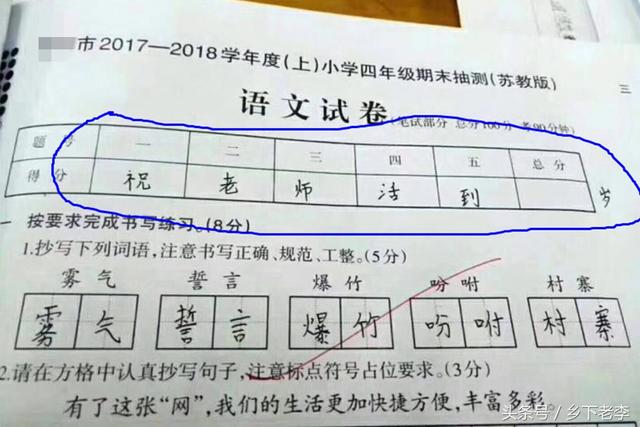 市2017—2018学年度(上)小学四年级期末抽测(苏教版)
三
语文试卷(笔试部分 总分100分 考90分钟)
题号 一 二 三 四 五 总分
得分 祝 老 师 活 到 岁
一 按要求完成书写练习。(8分)
1.抄写下列词语,注意书写正确、规范、工整。(5分)
雾气 誓言 爆竹 吩咐 村寨
雾气 誓言 爆竹 吩咐 村寨
2.请在方格中认真抄写句子,注意标点符号占位要求。(3分)
有了这张“网”,我们的生活更加快捷方便,丰富多彩。
头条号 / 乡下老李